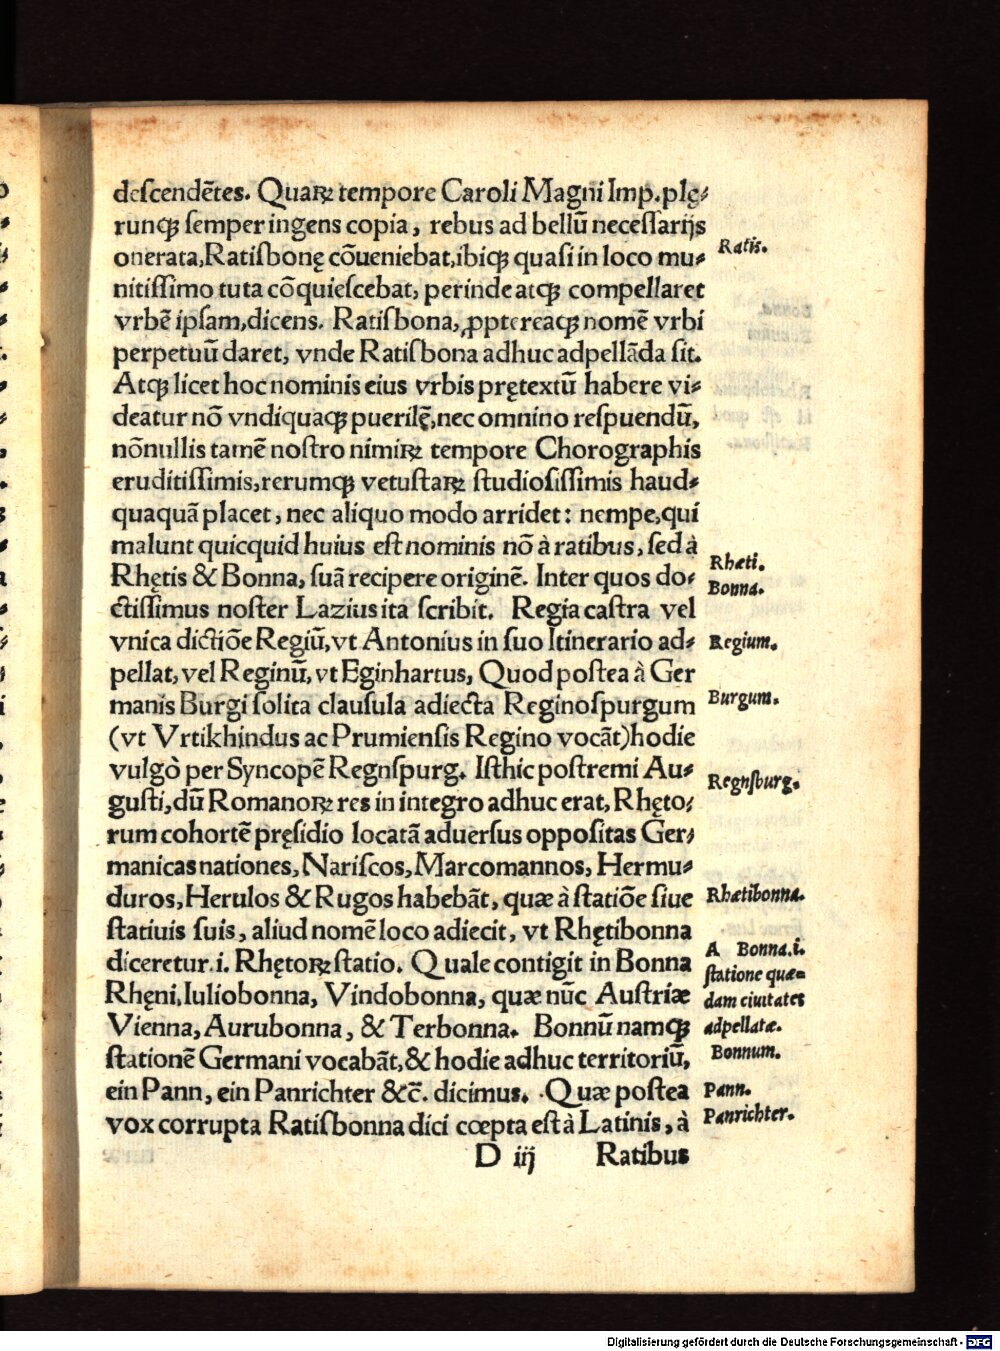 deſcendẽtes. Quaꝝ tempore Caroli Magni Imp. plę⸗
runqꝫ ſemper ingens copia, rebus ad bellũ neceſſarijs
onerata, Ratiſbonę cõueniebat, ibiqꝫ quaſi in loco mu⸗
nitiſſimo tuta cõquieſcebat, perinde atqꝫ compellaret
vrbẽ ipſam, dicens. Ratiſbona, ꝓptereaqꝫ nomẽ vrbi
perpetuũ daret, vnde Ratiſbona adhuc adpellãda ſit.
Atqꝫ licet hoc nominis eius vrbis prętextũ habere vi⸗
deatur nõ vndiquaqꝫ puerilẽ, nec omnino reſpuendũ,
nõnullis tamẽ noſtro nimiꝝ tempore Chorographis
eruditiſſimis, rerumqꝫ vetuſtaꝝ ſtudioſiſſimis haud⸗
quaquã placet, nec aliquo modo arridet: nempe, qui
malunt quicquid huius eſt nominis nõ à ratibus, ſed à
Rhętis & Bonna, ſuã recipere originẽ. Inter quos do⸗
ctiſſimus noſter Lazius ita ſcribit. Regia caſtra vel
vnica dictiõe Regiũ, vt Antonius in ſuo Itinerario ad⸗
pellat, vel Reginũ, vt Eginhartus, Quod poſtea à Ger
manis Burgi ſolita clauſula adiecta Reginoſpurgum
(vt Vrtikhindus ac Prumienſis Regino vocãt) hodie
vulgò per Syncopẽ Regnſpurg. Iſthic poſtremi Au⸗
guſti, dũ Romanoꝝ res in integro adhuc erat, Rhęto⸗
rum cohortẽ pręſidio locatã aduerſus oppoſitas Ger⸗
manicas nationes, Nariſcos, Marcomannos, Hermu⸗
duros, Herulos & Rugos habebãt, quæ à ſtatiõe ſiue
ſtatiuis ſuis, aliud nomẽ loco adiecit, vt Rhętibonna
diceretur .i. Rhętoꝝ ſtatio. Quale contigit in Bonna
Rhęni, Iuliobonna, Vindobonna, quæ nũc Auſtriæ
Vienna, Aurubonna, & Terbonna. Bonnũ namqꝫ
ſtationẽ Germani vocabãt, & hodie adhuc territoriũ,
ein Pann, ein Panrichter &c̃. dicimus. Quæ poſtea
vox corrupta Ratiſbonna dici cœpta eſt à Latinis, à
D iij Ratibus
Ratis.
Rhæti.
Bonna.
Regium.
Burgum.
Regnſburg.
Rhætibonna.
A Bonna .i.
ſtatione quæ⸗
dam ciuitates
adpellatæ.
Bonnum.
Pann.
Panrichter.
Digitalisierung gefördert durch die Deutsche Forschungsgemeinschaft - DFG